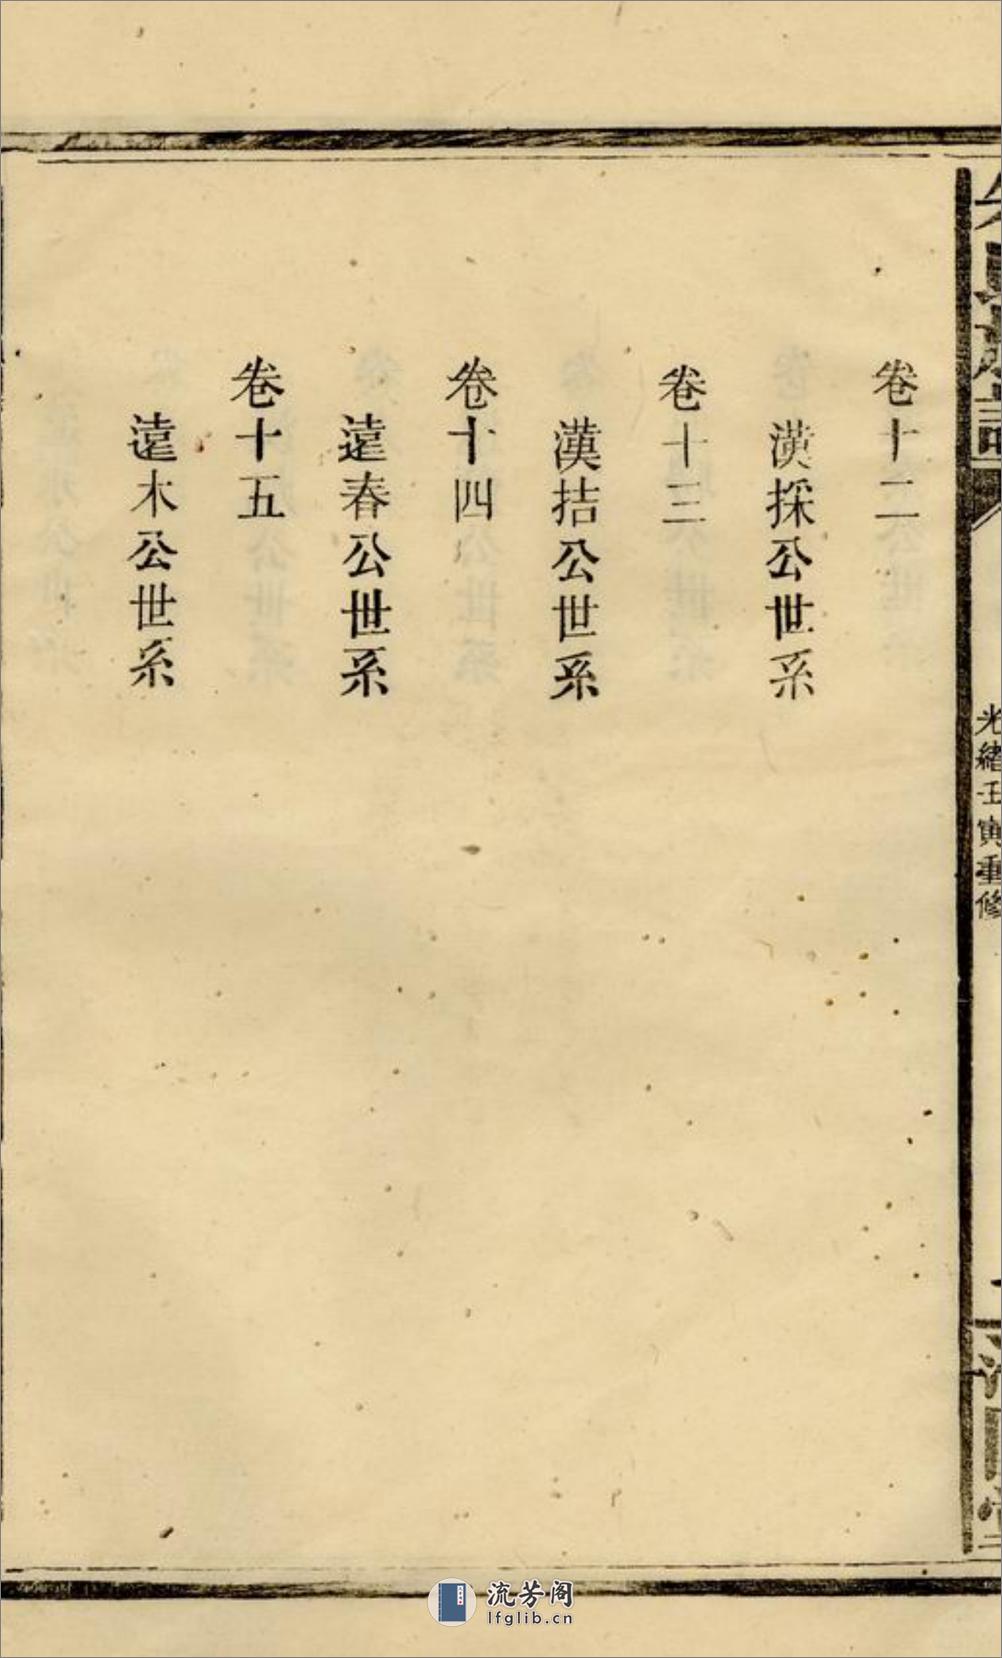 卷十二
漢採公世系
卷十三
漢拮公世系
卷十四
遠春公世系
卷十五
遠木公世系
光緒壬寅重修
二
流芳阁
lfglib.cn